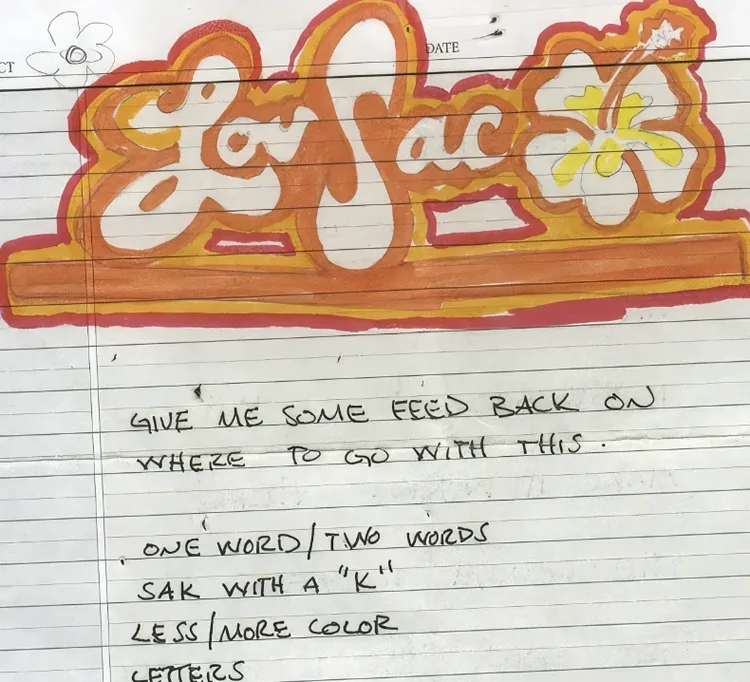 CT
DATE
Lov Sac
GIVE ME SOME FEED BACK ON
WHERE TO GO WITH THIS.
. ONE WORD/TWO WORDS
SAK WITH A "K"
LESS/MORE COLOR
LETTERS